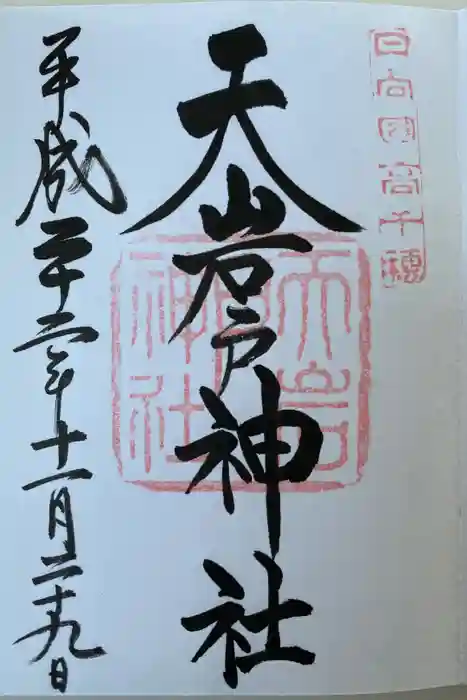 日向國高千穂
天岩戸神社
天岩
神社
平成二十二年十一月二十九日